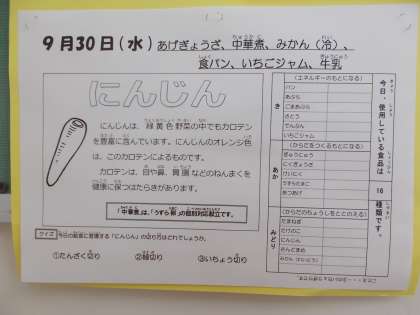 9月30日(水) あげぎょうざ、中華煮、みかん(冷)、
食パン、いちごジャム、牛乳
にんじん
にんじんは、緑黄色野菜の中でもカロテン
を豊富に含んでいます。にんじんのオレンジ色
は、このカロテンによるものです。
カロテンは、目や鼻、胃腸などのねんまくを
健康に保つはたらきがあります。
「中華煮」は、「うずら卵」の個別対応献立です。
クイズ 今日の給食に登場する「にんじん」の切り方はどれでしょうか。
①たんざく切り ②輪切り ③いちょう切り
今日、使用している食品は
16
種類です。
(エネルギーのもとになる)
き
パン
あぶら
ごまあぶら
さとう
でんぷん
いちごジャム
(からだをつくるもとになる)
あか
ぎゅうにゅう
にくぎょうざ
けいにく
うずらたまご
あつあげ
(からだのちょうしをととのえる)
みどり
たまねぎ
たけのこ
にんじん